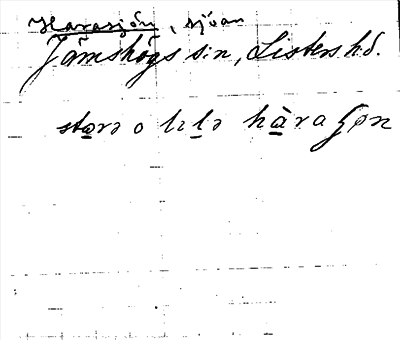 Harasjön, sjöar
Jämshögs s:n, Listers hd.
storə o lɩlə hàraʃøn